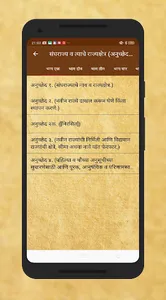 संघराज्य व त्याचे राज्यक्षेत्र (अनुच्छेद...
भाग एक भाग दोन भाग तीन भाग चार
अनुच्छेद १. (संघराज्याचे नाव व राज्यक्षेत्र)
अनुच्छेद २. (नवीन राज्ये दाखल करून घेणे किंवा
स्थापन करणे.)
अनुच्छेद २क. ([निरसित])
अनुच्छेद ३. (नवीन राज्यांची निर्मिती आणि विद्यमान
राज्यांची क्षेत्रे, सीमा अथवा नावे यांत फेरफार.)
अनुच्छेद ४. (पहिल्या व चौथ्या अनुसूचींच्या
सुधारणेसाठी आणि पूरक, आनुषंगिक व परिणामस्व.